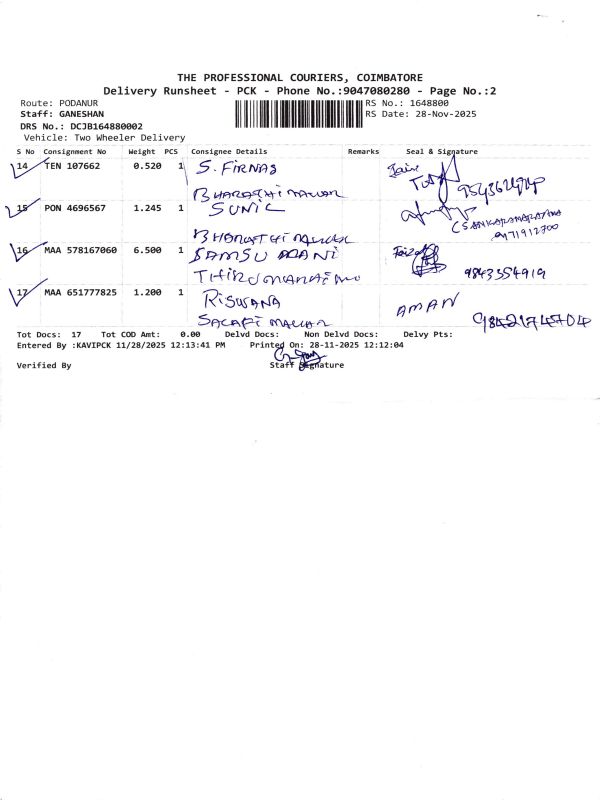 THE PROFESSIONAL COURIERS, COIMBATORE
Delivery Runsheet - PCK - Phone No.:9047080280 - Page No.:2
Route: PODANUR RS No.: 1648800
Staff: GANESHAN RS Date: 28-Nov-2025
DRS No.: DCJB164880002
Vehicle: Two Wheeler Delivery
S No Consignment No Weight PCS Consignee Details Remarks Seal & Signature
14 TEN 107662 0.520 1 S. FIRNAS
BHARATHI NAGAR
15 PON 4696567 1.245 1 SUNIL
BHARATHI NAGAR
16 MAA 578167060 6.500 1 SAMSU RANI 9843354919
17 MAA 651777825 1.200 1 RISWANA AMAN
Tot Docs: 17 Tot COD Amt: 0.00 Delvd Docs: Non Delvd Docs: Delvy Pts:
Entered By :KAVIPCK 11/28/2025 12:13:41 PM Printed On: 28-11-2025 12:12:04
Verified By Staff Signature